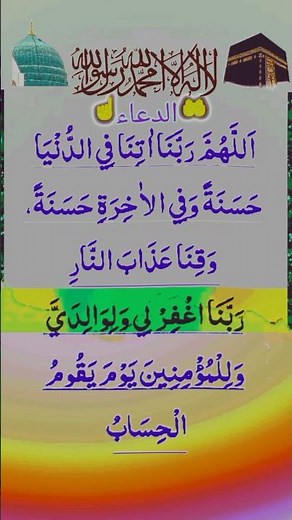 لا إله إلا الله محمد رسول الله
الدعاء
اَللَّهُمَّ رَبَّنَا اٰتِنَا فِي الدُّنْيَا
حَسَنَةً وَفِي الْاٰخِرَةِ حَسَنَةً،
وَقِنَا عَذَابَ النَّارِ
رَبَّنَا اغْفِرْ لِي وَلِوَالِدَيَّ
وَلِلْمُؤْمِنِينَ يَوْمَ يَقُومُ
الْحِسَابُ